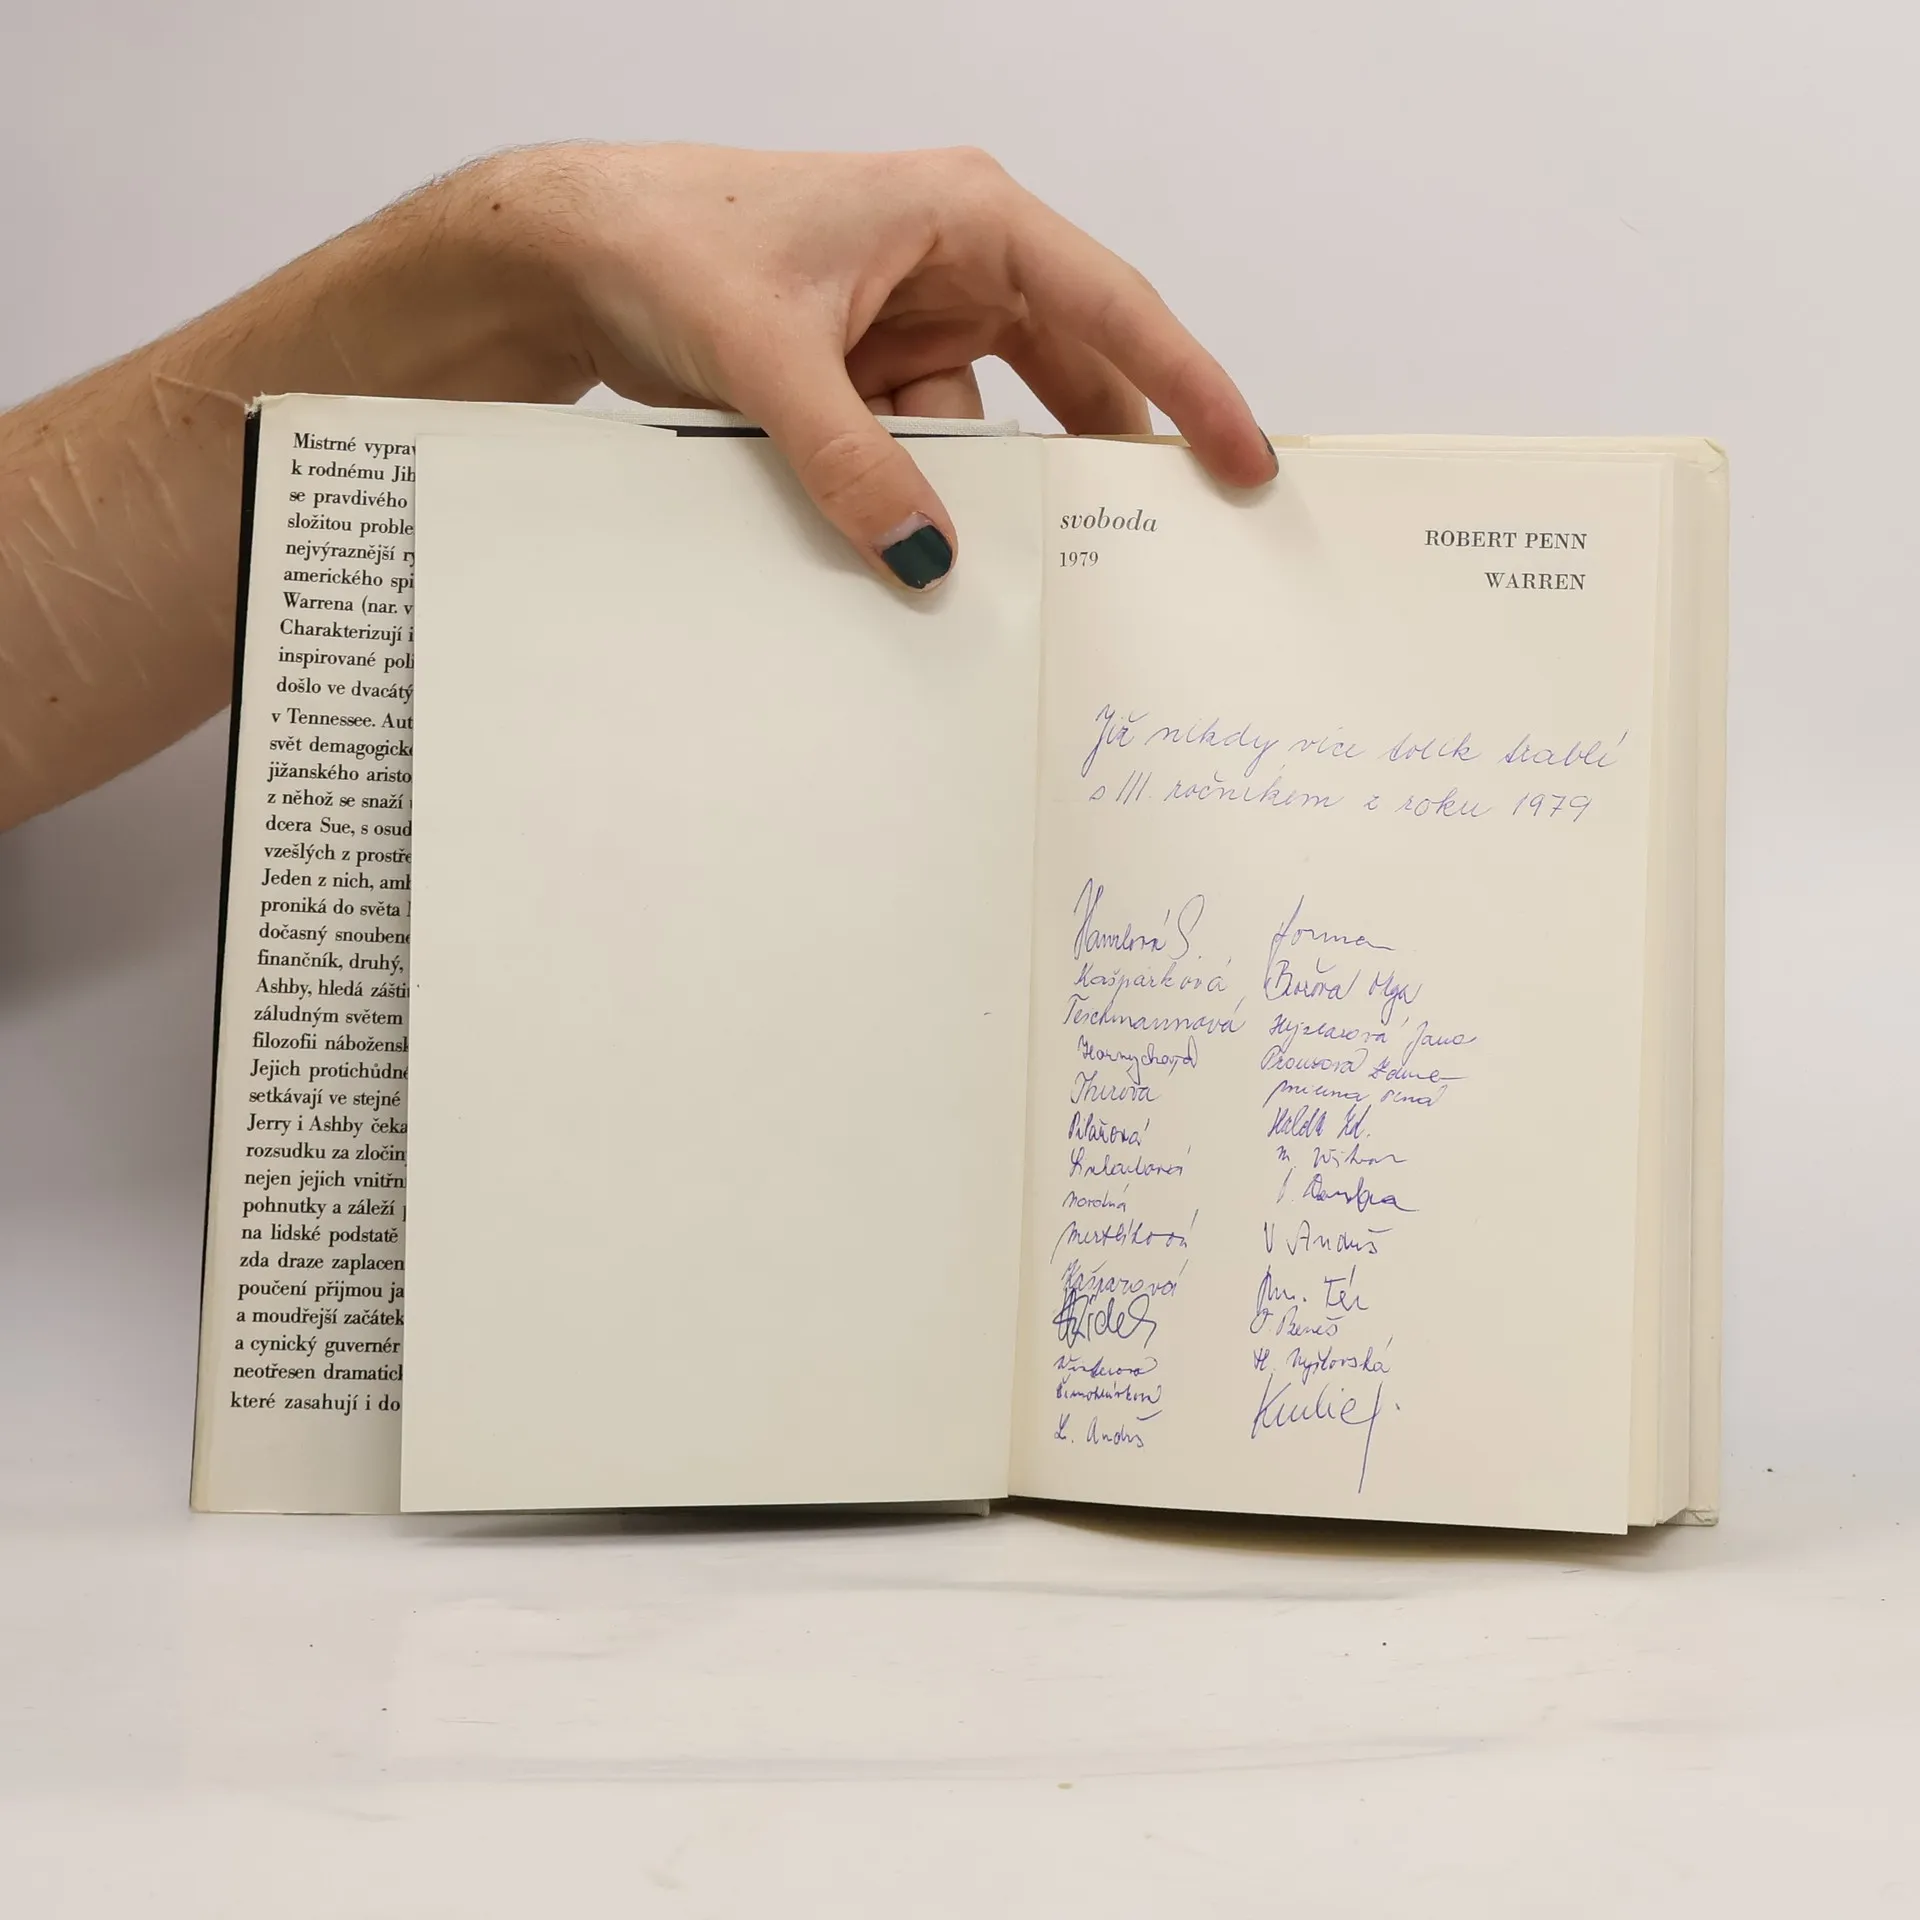 Mistrné vyprav
k rodnému Jih
se pravdivého
složitou proble
nejvýraznější ry
amerického spi
Warrena (nar. v
Charakterizují i
inspirované poli
došlo ve dvacátý
v Tennessee. Aut
svět demagogické
jižanského aristo
z něhož se snaží
dcera Sue, s osud
vzešlých z prostře
Jeden z nich, amb
proniká do světa
dočasný snoubene
finančník, druhý,
Ashby, hledá záštit
záludným světem
filozofii nábožensk
Jejich protichůdné
setkávají ve stejné
Jerry i Ashby čeka
rozsudku za zločin
nejen jejich vnitřn
pohnutky a záleží
na lidské podstatě
zda draze zaplacen
poučení přijmou ja
a moudřejší začátek
a cynický guvernér
neotřesen dramatick
které zasahují i do
svoboda
1979
ROBERT PENN
WARREN
Již nikdy více tolik trablí
s III. ročníkem z roku 1979
Kašpárková
Teschmannová
Hornychová
Thérová
Pilařová
Mertlíková
Kašparová
L. Anduš
Olga
Jana
Prousová
V Anduš
J. Beneš